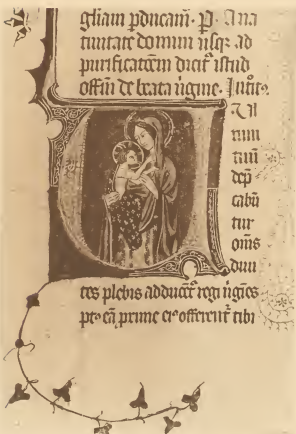 gliam pducam. P. A na
tiuitate domini usq; ad
purificatoem dicit' istud
offm de beata uigine. Introit9.
Vl
tum
tuu
dep
cabu
tur
oms
diui
tes plebis adducent' regi uigies
pt9 ea prime ei9 offerent' tibi